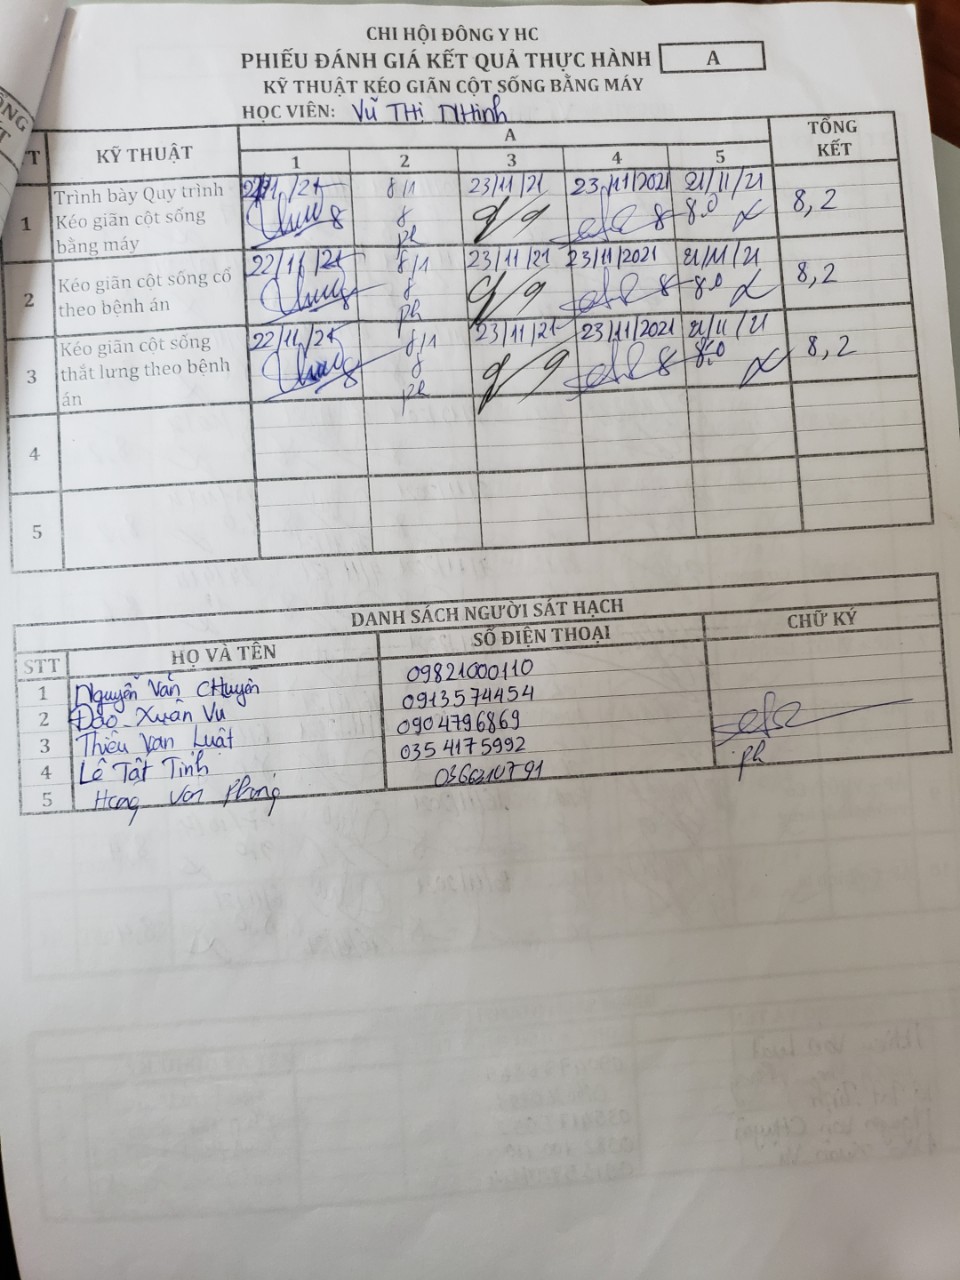 CHI HỘI ĐÔNG Y HC
PHIẾU ĐÁNH GIÁ KẾT QUẢ THỰC HÀNH A
KỸ THUẬT KÉO GIÃN CỘT SỐNG BẰNG MÁY
HỌC VIÊN: Vũ THị NHinh
T KỸ THUẬT A TỔNG KẾT
1 2 3 4 5
1 Trình bày Quy trình Kéo giãn cột sống bằng máy 8 8/1 8 ph 23/11/21 9 23/11/2021 8 21/11/21 8.0 8,2
2 Kéo giãn cột sống cổ theo bệnh án 22/11/21 8/1 8 ph 23/11/21 9 23/11/2021 8 21/11/21 8.0 8,2
3 Kéo giãn cột sống thắt lưng theo bệnh án 22/11/21 8/1 8 ph 23/11/21 9 23/11/2021 8 21/11/21 8.0 8,2
4
5
DANH SÁCH NGƯỜI SÁT HẠCH
STT HỌ VÀ TÊN SỐ ĐIỆN THOẠI CHỮ KÝ
1 Nguyễn Văn CHuyên 09821000110
2 Đào Xuân Vu 0913574454
3 Thiều Van Luật 0904796869
4 Lê Tất Tinh 0354175992
5 Hong Van Phong 0366210791 ph